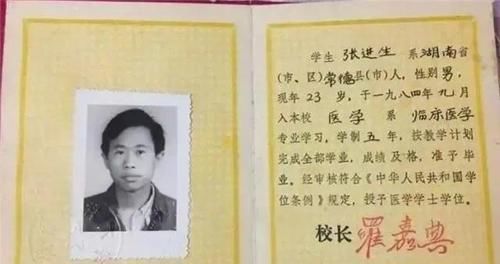 学生 张进生 系湖南省
(市、区)常德县(市)人，性别男，
现年23岁，于一九八四年九月
入本校 医学 系 临床医学
专业学习，学制五年，按教学计划
完成全部学业，成绩及格，准予毕
业。经审核符合《中华人民共和国学
位条例》规定，授予医学学士学位。
校长 罗嘉典